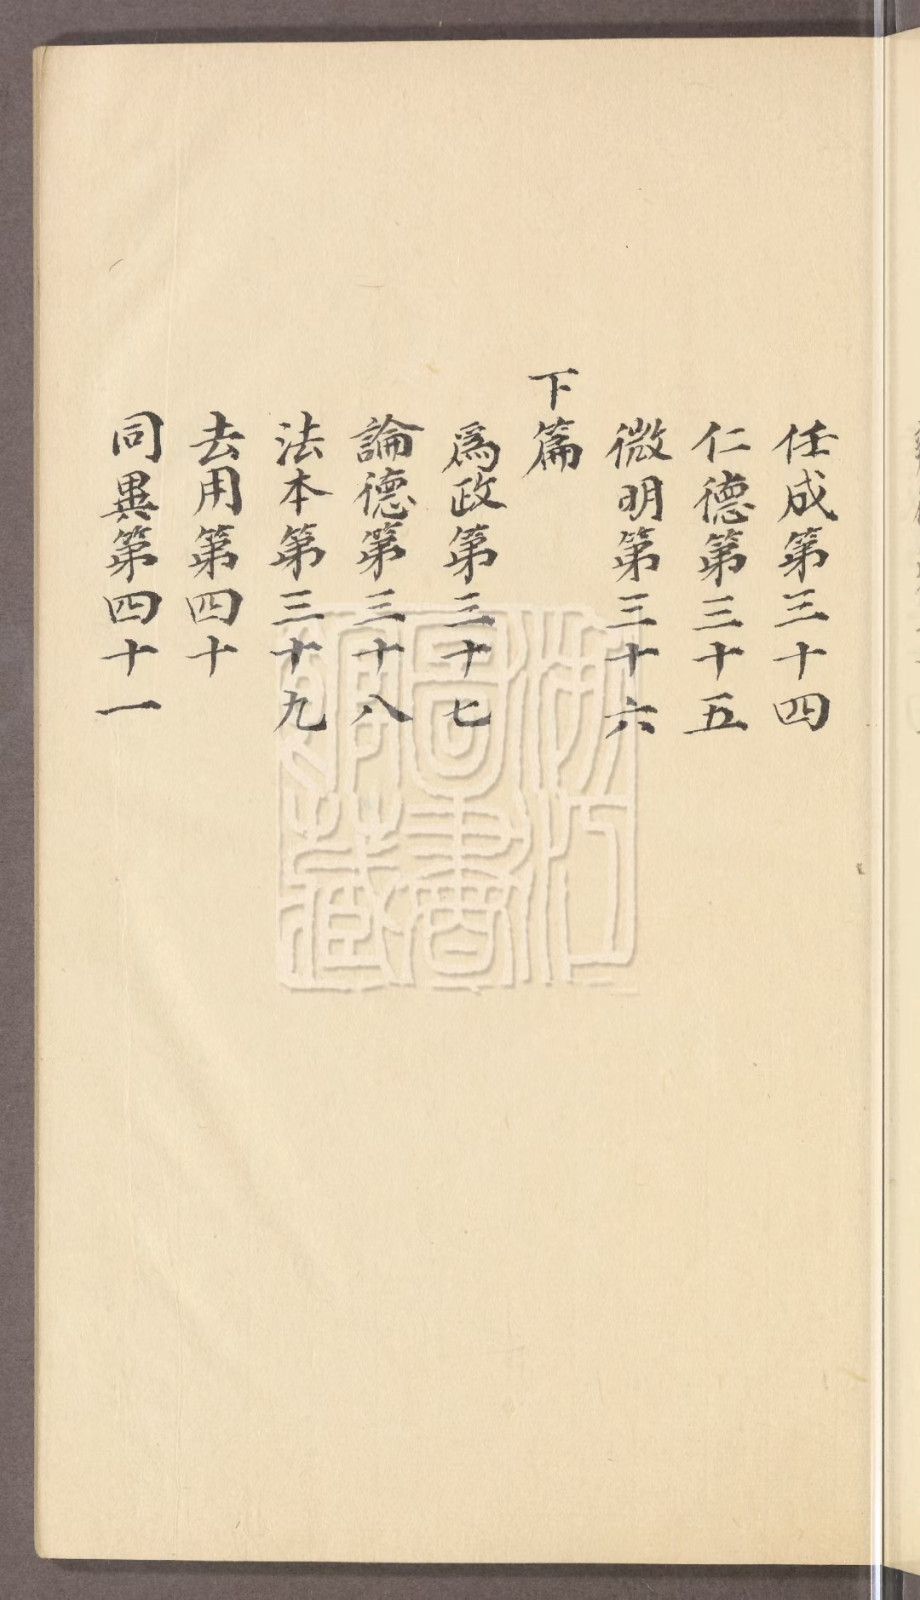 任成第三十四
仁德第三十五
微明第三十六
下篇
爲政第三十七
論德第三十八
法本第三十九
去用第四十
同異第四十一
浙江圖書館藏